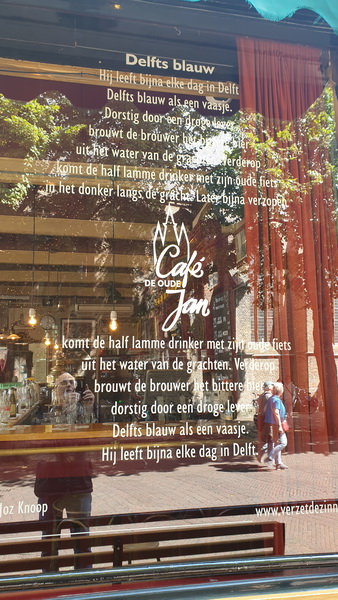 Delfts blauw
Hij leeft bijna elke dag in Delft
Delfts blauw als een vaasje.
Dorstig door een droge lever
brouwt de brouwer het bittere bier
uit het water van de grachten. Verderop
komt de half lamme drinker met zijn oude fiets
in het donker langs de gracht. Later bijna verzopen
Café
DE OUDE
Jan
komt de half lamme drinker met zijn oude fiets
uit het water van de grachten. Verderop
brouwt de brouwer het bittere bier
dorstig door een droge lever
Delfts blauw als een vaasje.
Hij leeft bijna elke dag in Delft.
Joz Knoop
www.verzetdezinn